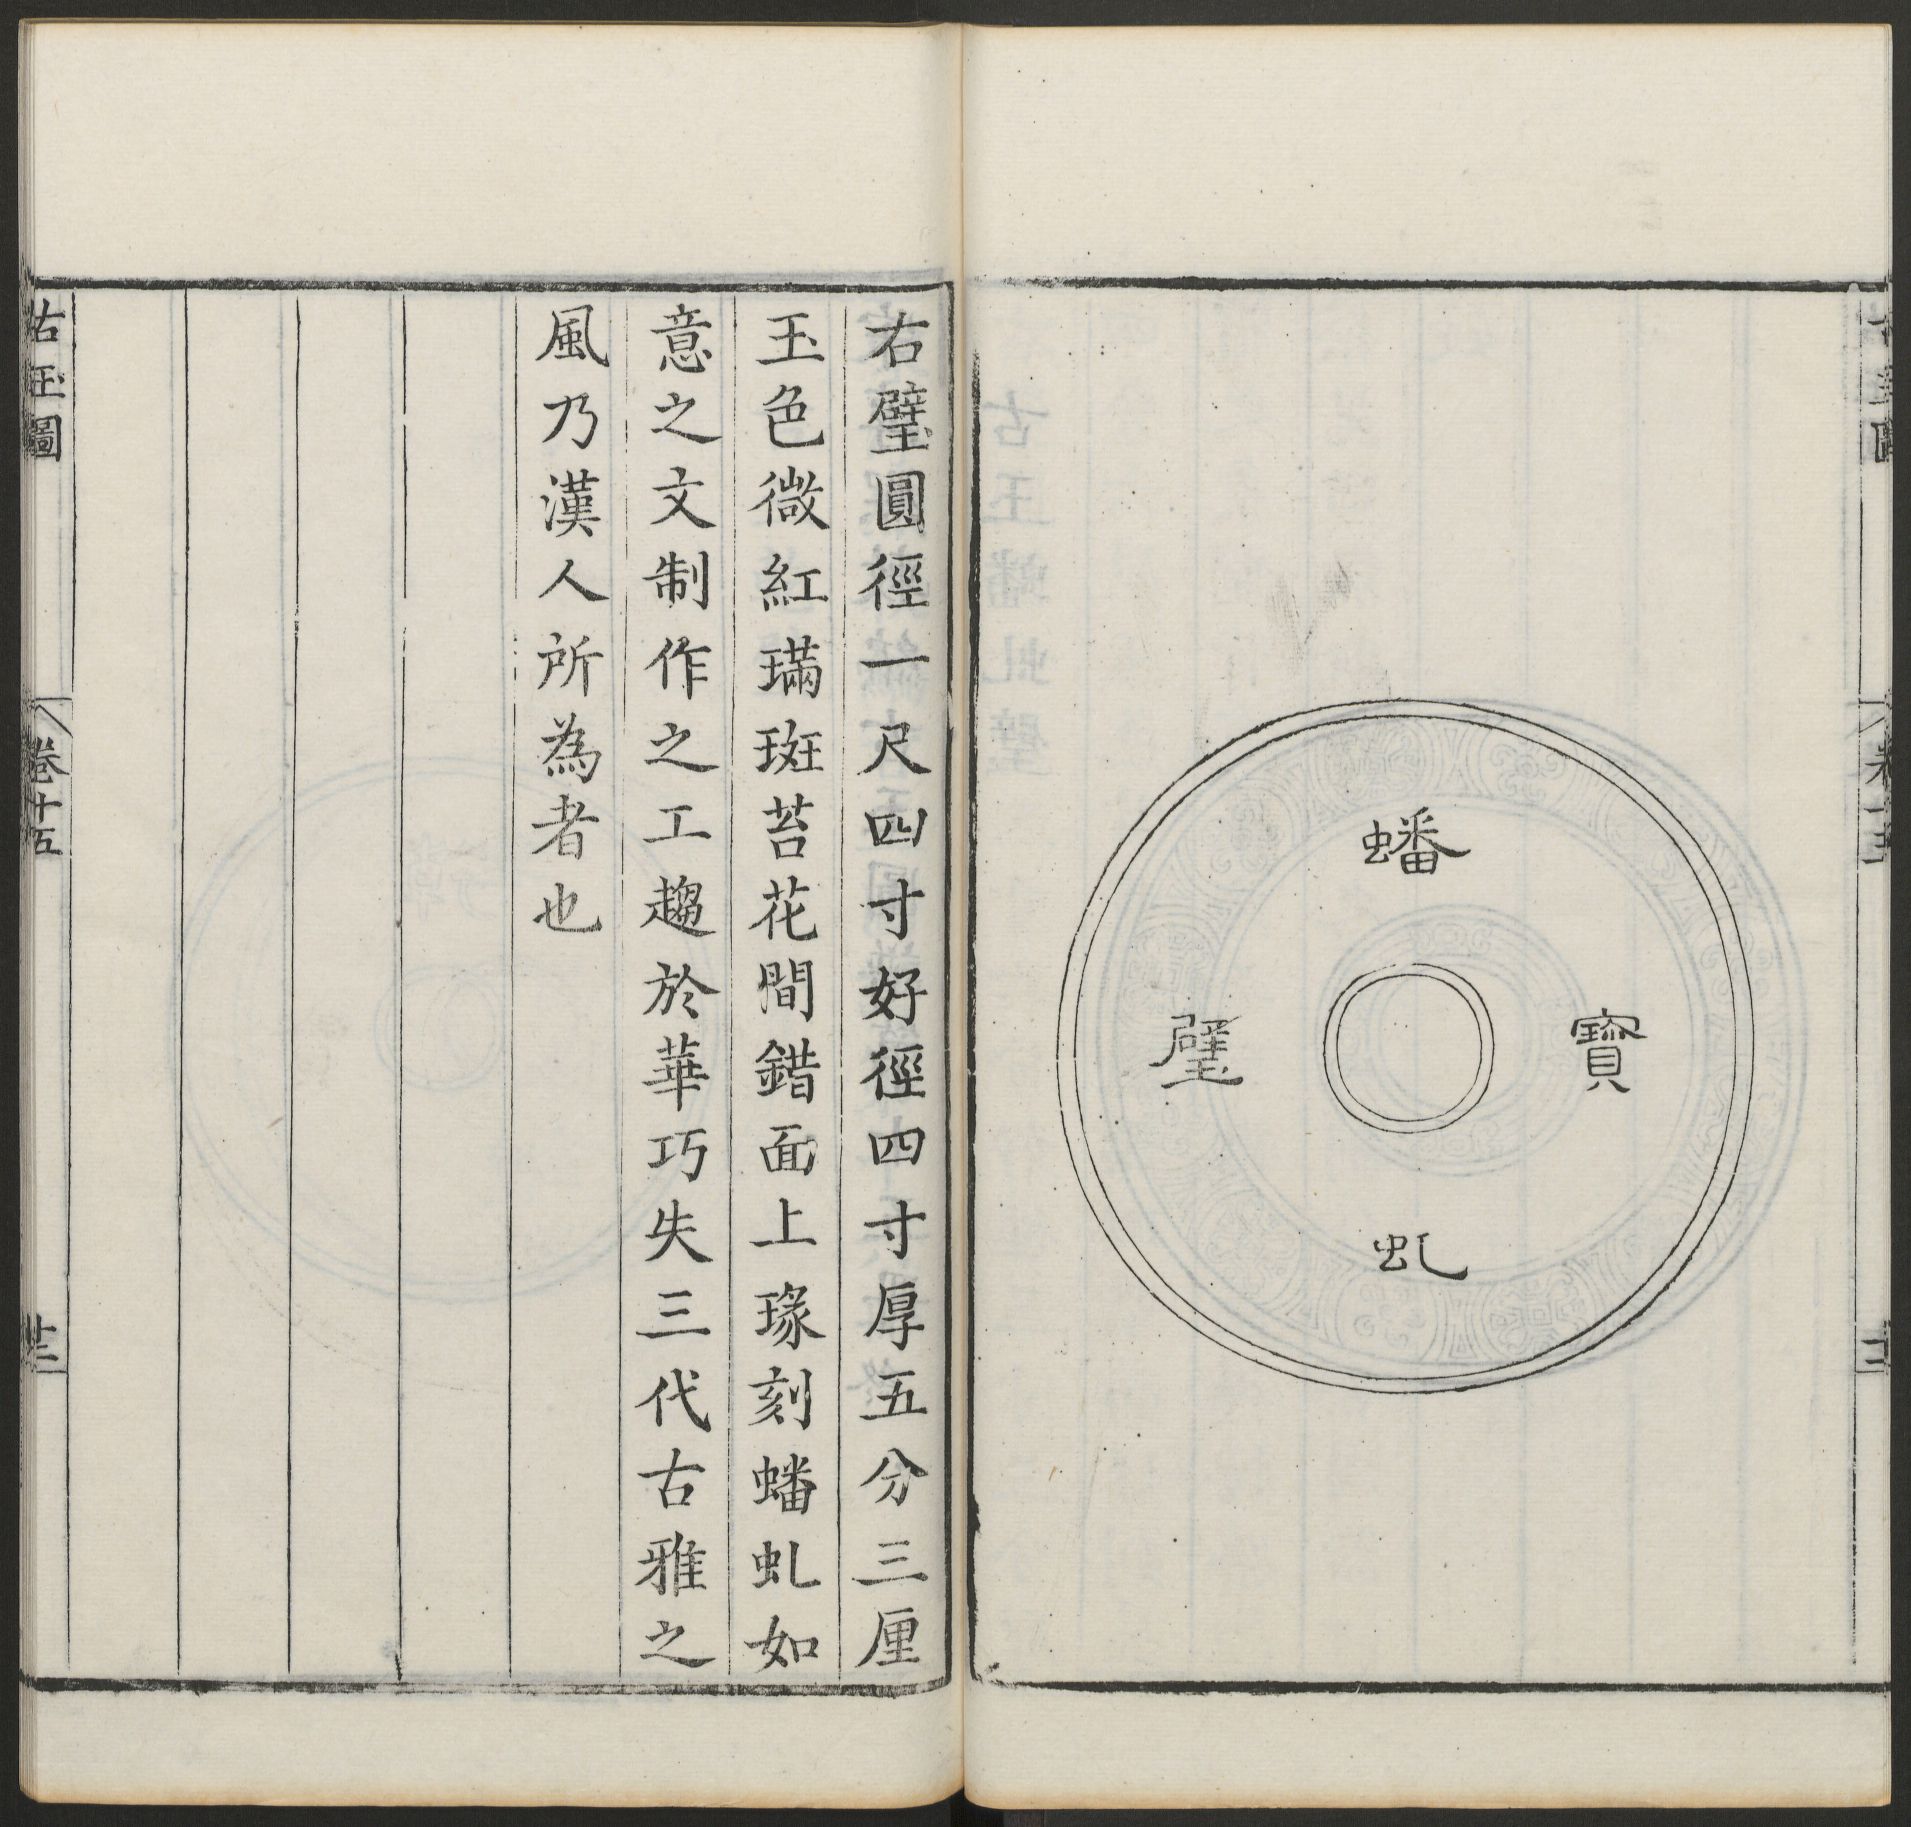 蟠
虬
寶
璧
右璧圓徑一尺四寸好徑四寸厚五分三厘
玉色微紅璊斑苔花間錯面上瑑刻蟠虬如
意之文制作之工趨於華巧失三代古雅之
風乃漢人所為者也
古玉圖
卷十五